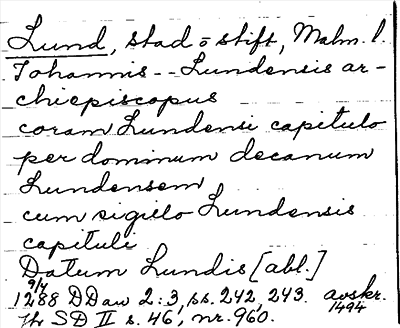 Lund, stad o stift, Malm. l.
Johannis -- Lundensis ar-
chiepiscopus
coram Lundensi capitulo
per dominum decanum
Lundensem
cum sigillo Lundensis
capituli
Datum Lundis [abl.]
9/7
1288 DDaw 2:3, ss. 242, 243. avskr. 1494
Jfr SD II s. 46, nr. 960.